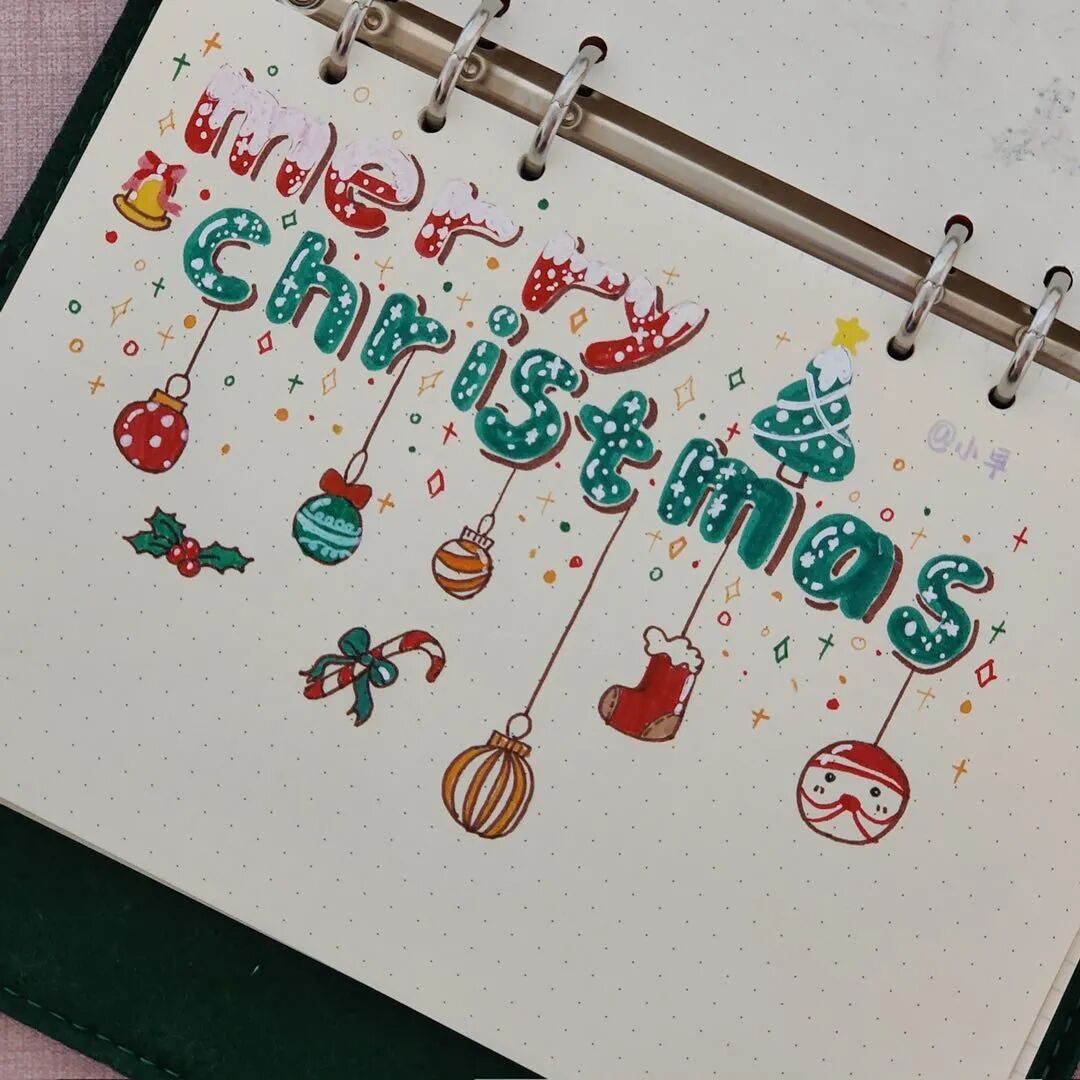 merry
christmas
@小早